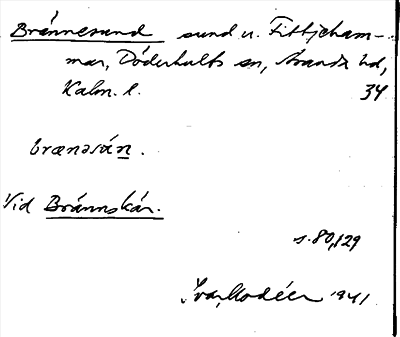 Brännesund sund u. Fittjeham-
mar, Döderhults sn, Stranda hd,
Kalm. l. 34
brænəsún.
Vid Brännskär.
s. 80, 129
Ivar Modéer 1941